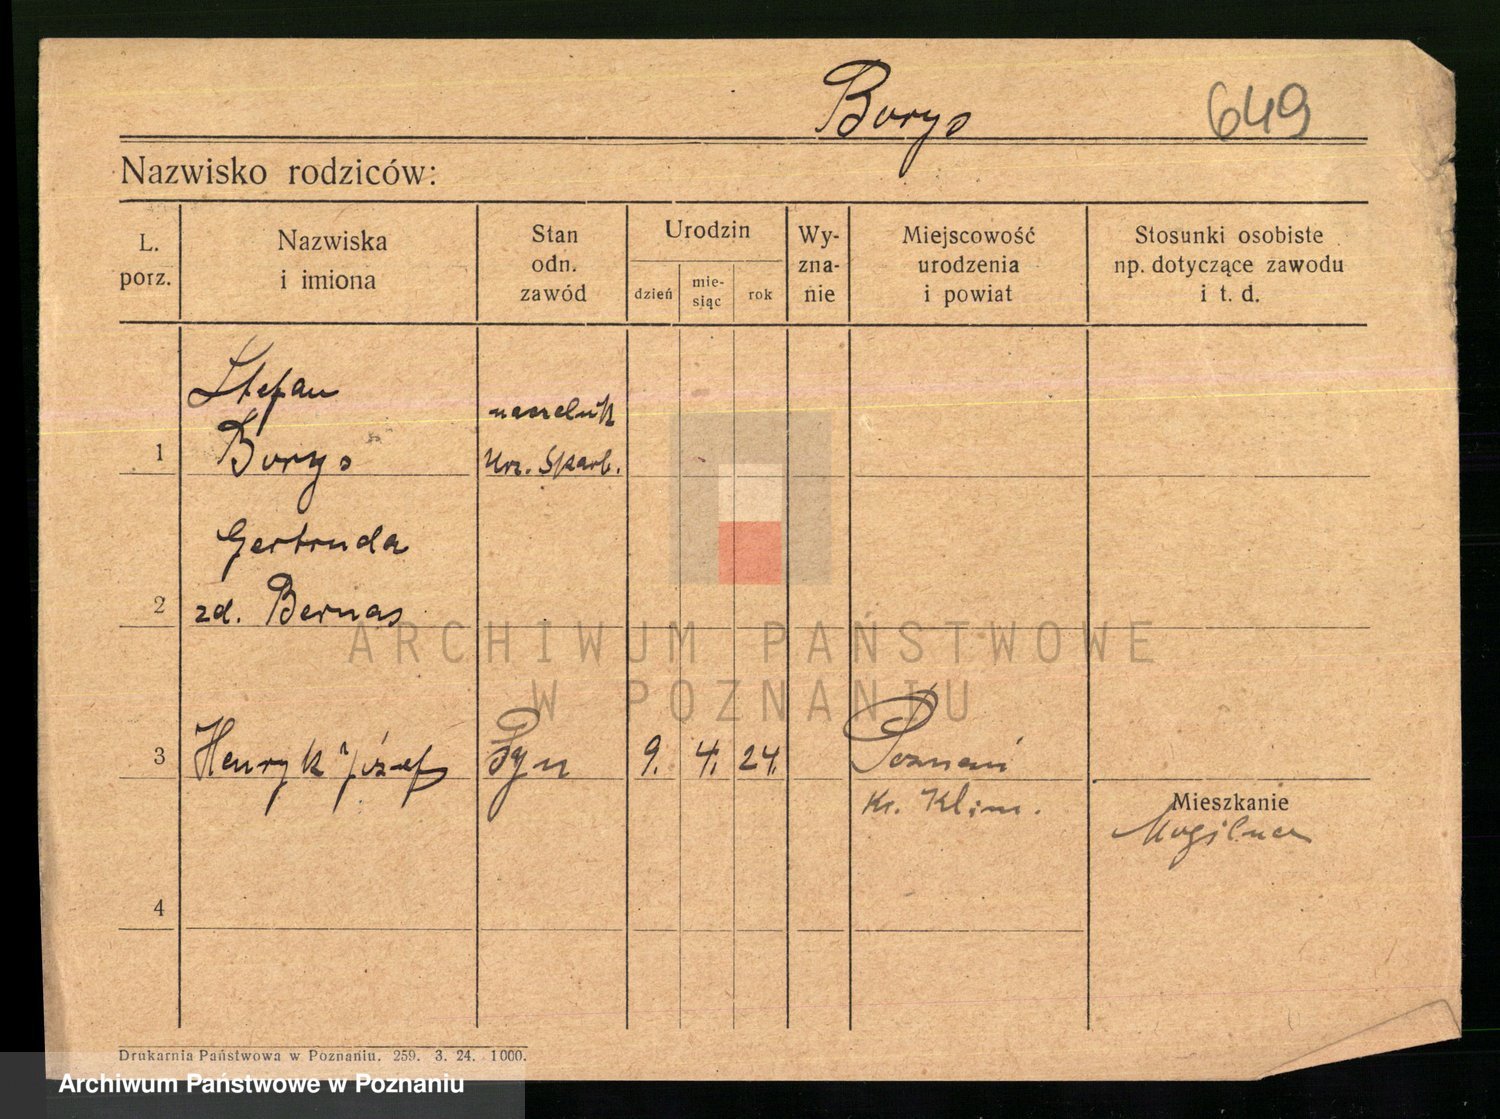 Borys
649
Nazwisko rodziców:
L. porz.
Nazwiska i imiona
Stan odn. zawód
Urodzin
dzień
mie-siąc
rok
Wy-zna-nie
Miejscowość urodzenia i powiat
Stosunki osobiste np. dotyczące zawodu i t. d.
Stefan
1 Borys
naczelnik
Urz. Skarb.
Gertruda
2 zd. Bernas
ARCHIWUM PAŃSTWOWE
W POZNANIU
3 Henryk Józef Syn 9. 4. 24. Poznań
Kr.
Mieszkanie
Mogilno
4
Drukarnia Państwowa w Poznaniu. 259. 3. 24. 1000.
Archiwum Państwowe w Poznaniu